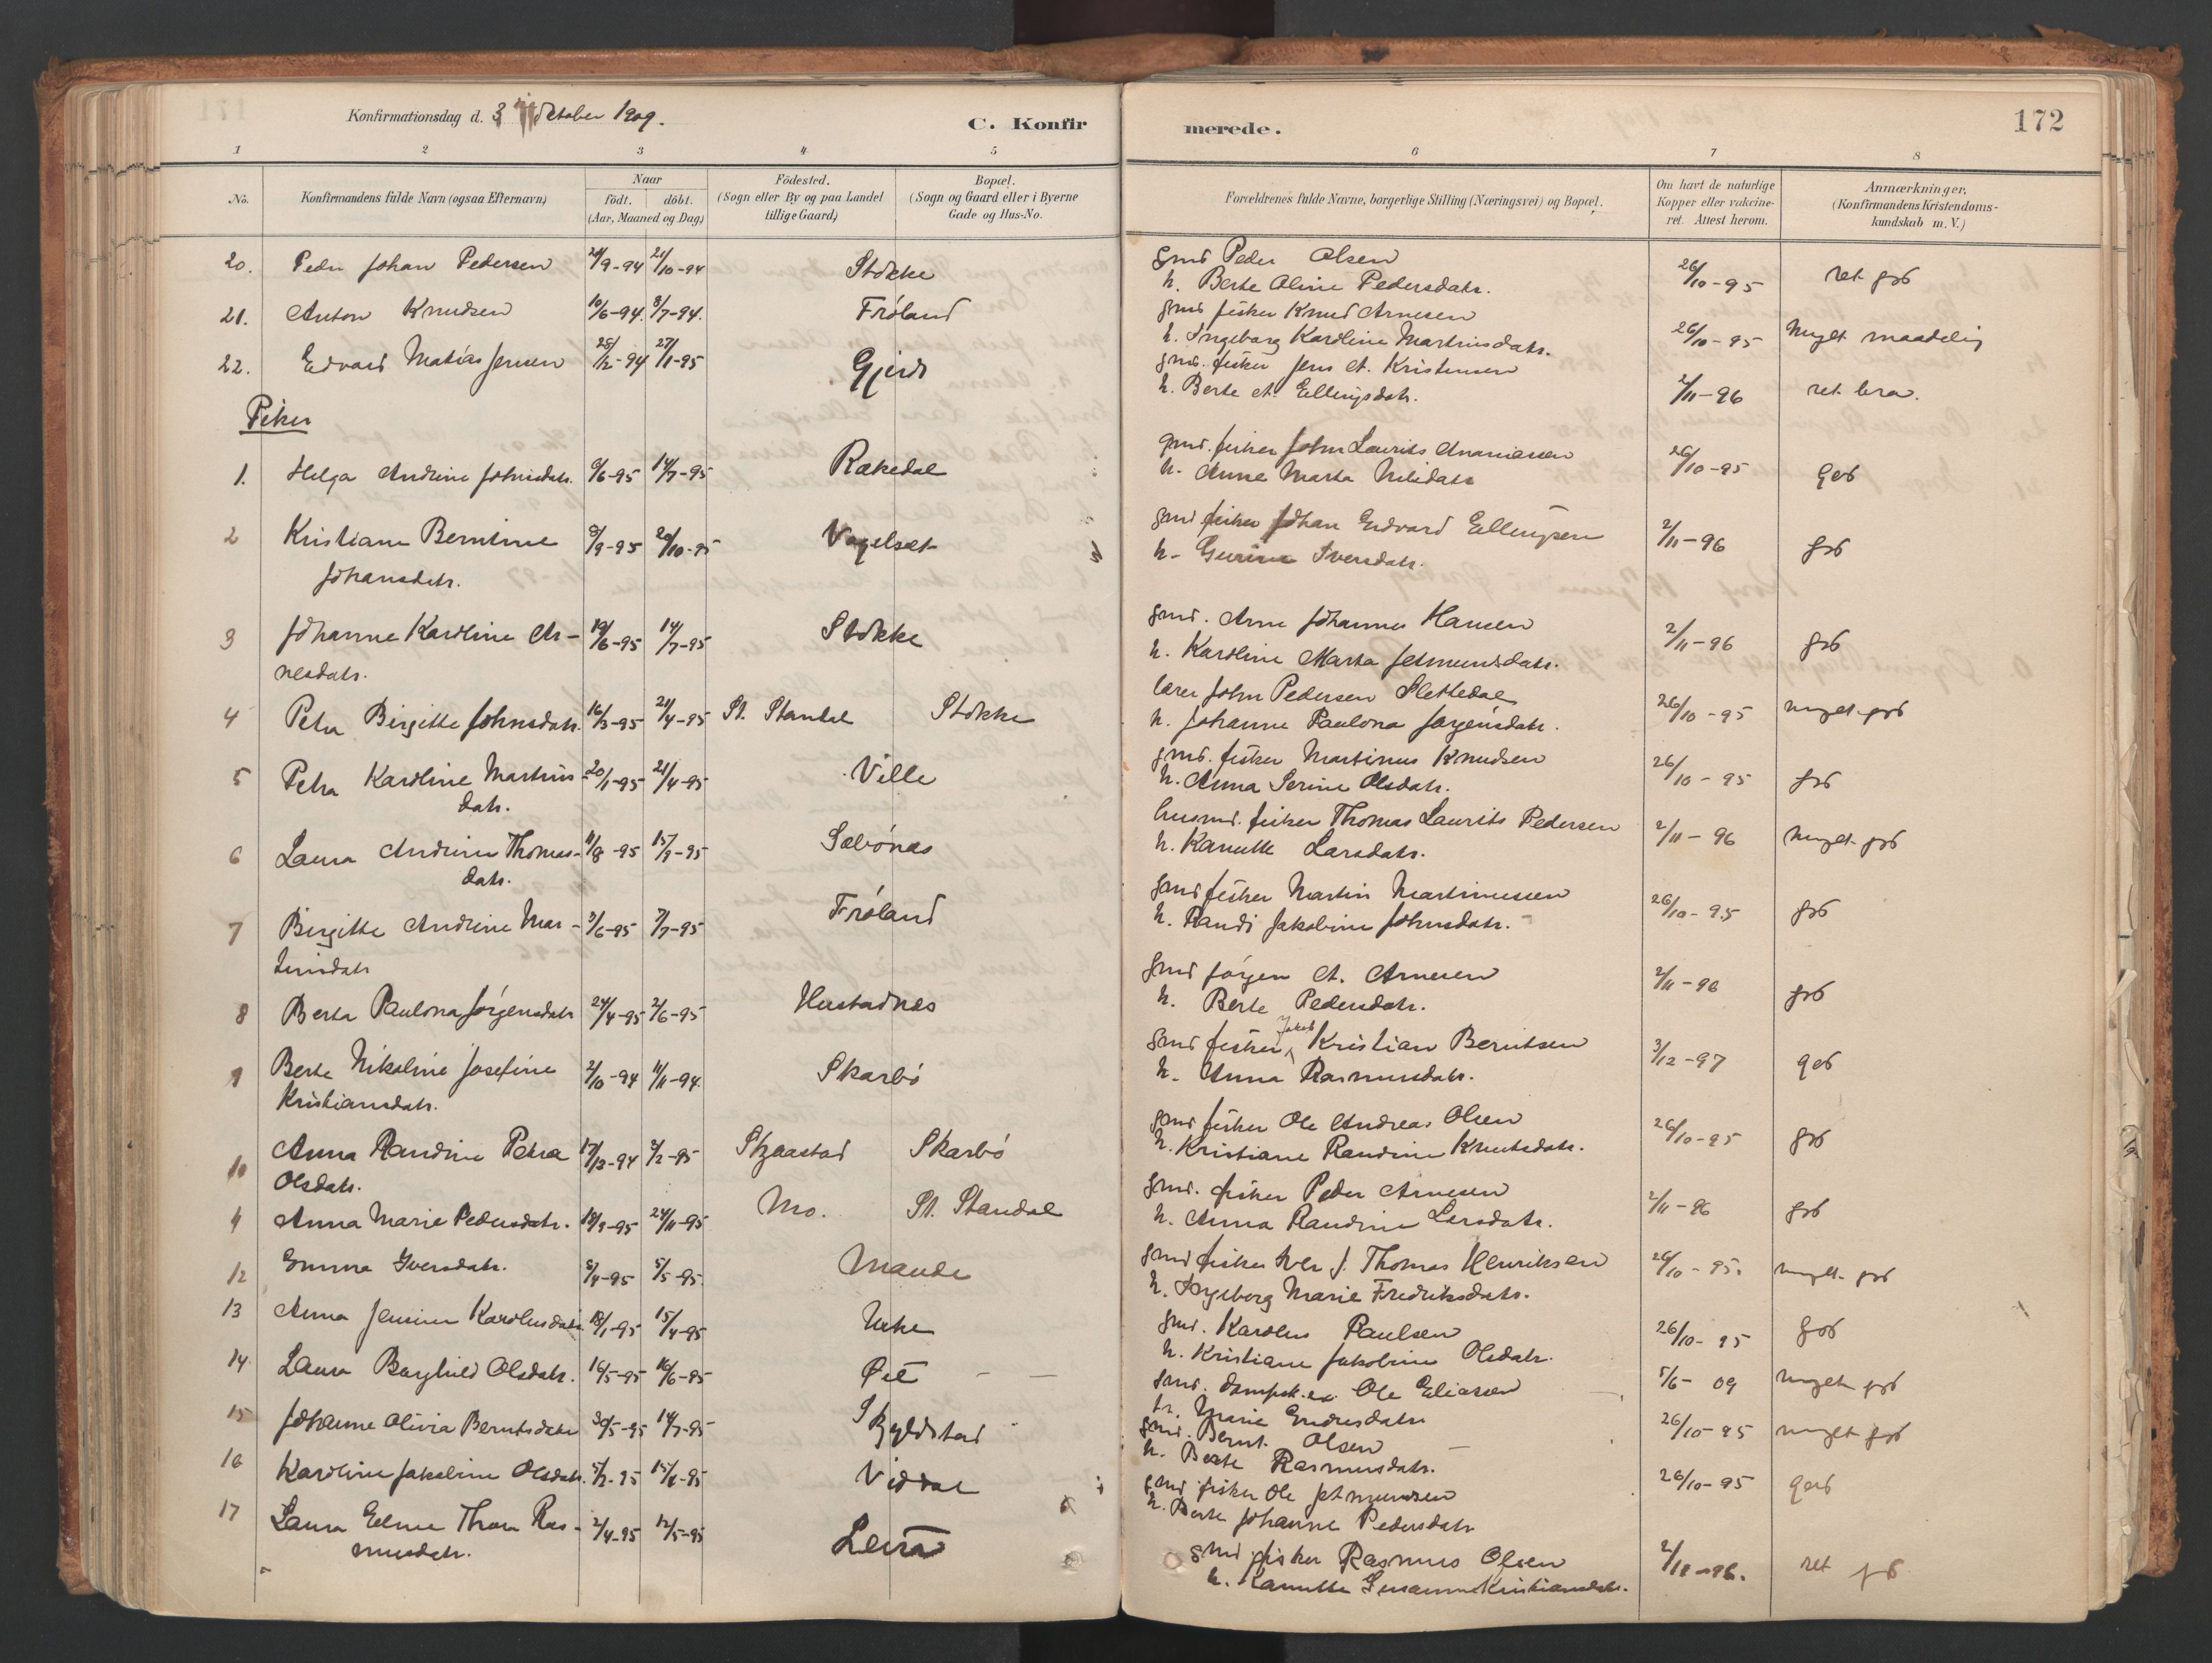 Konfirmationsdag d. 3 Oktober 1909.
C. Konfirmerede.
172
1 2 3 4 5 6 7 8
No.
Konfirmandens fulde Navn (ogsaa Efternavn)
Naar
födt. döbt.
(Aar, Maaned og Dag)
Födested.
(Sogn eller By og paa Landet
tillige Gaard)
Bopæl.
(Sogn og Gaard eller i Byerne
Gade og Hus-No.
Forældrenes fulde Navne, borgerlige Stilling (Næringsvei) og Bopæl.
Om havt de naturlige
Kopper eller vakcine-
ret. Attest herom.
Anmærkninger.
(Konfirmandens Kristendoms-
kundskab m. V.)
20. Peder Johan Pedersen /9-94 21/10-94 Stokke gmd Peder Olsen 26/10-95 ret god
h. Berte Oline Pedersdatr.
21. Anton Knudsen 10/6-94. 8/7-94. Fröland gmd fisker Knud Arnesen 26/10-95 meget maadelig
h. Ingeborg Karoline Martinusdatr.
22. Edvard Matias Jensen 28/12-94 27/1-95 Gjerde gmd. fisker Jens A. Kristensen 2/11-96 ret bra.
h. Berte A. Ellingsdatr.
Piker
1. Helga Andrine Johnsdatr. 9/6-95 14/7-95 Rakedal gmd. fisker John Laurits Ananiassen 26/10-95 god
h. Anne Marta Nilsdatr
2 Kristiane Berntine 8/9-95 20/10-95 Vagelsæt gmd fisker Johan Edvard Ellingsen 2/11-96 god
Johansdatr. h. Gurine Iversdatr.
3 Johanne Karoline Ar- 19/6-95 14/7-95 Stokke gmd. Arne Johannes Hansen 2/11-96 god
nesdatr. h. Karoline Marta Jetmundsdatr.
4 Petra Birgitte Johnsdatr. 16/3-95 21/4-95 St. Standal Stokke lærer John Pedersen Slettedal 26/10-95 meget god
h. Johanne Paulona Jørgensdatr.
5 Petra Karoline Martinus- 20/1-95 21/4-95 Ville gmd. fisker Martinus Knudsen 26/10-95 god
datr. h. Anna Serine Olsdatr.
6 Laura Andrine Thomas- 11/8-95 15/9-95 Sæbönes husmd. fisker Thomas Laurits Pedersen 2/11-96 meget god
datr. h. Kanutte Larsdatr.
7 Birgitte Andrine Mar- 3/6-95 7/7-95 Fröland gmd fisker Martin Martinussen 26/10-95 god
tinsdatr h. Randi Jakobine Johnsdatr.
8 Berta Paulona Jörgensdatr 24/4-95 2/6-95 Hustadnes gmd Jörgen A. Arnesen 2/11-96 god
h. Berte Pedersdatr.
9 Berte Nikoline Josefine 2/10-94 11/11-94. Skarbö gmd fisker Jakob Kristian Berntsen 3/12-97 god
Kristiansdatr. h. Anna Rasmusdatr.
10 Anna Randine Petra 17/12-94 2/2-95 Skjaastad Skarbö gmd fisker Ole Andreas Olsen 26/10-95 god
Olsdatr. h. Kristiane Randine Knutsdatr.
11 Anna Marie Pedersdatr. 18/9-95 24/11-95 Mo. St. Standal gmd. fisker Peder Arnesen 2/11-96 god
h. Anna Randine Larsdatr.
12 Emma Iversdatr. 8/4-95 5/5-95 Maude gmd fisker Iver J. Thomas Henriksen 26/10-95. meget god
h. Ingeborg Marie Fredriksdatr.
13 Anna Jensine Karolusdatr. 18/1-95 15/4-95 Urke gmd. Karolus Paulsen 26/10-95 god
h. Kristiane Jakobine Olsdatr.
14 Laura Borghild Olsdatr. 16/5-95 16/6-95 Øie gmd. dampsk.ex. Ole Eliassen 5/6-09 meget god
h. Marie Endresdatr
15 Johanne Olivia Berntsdatr 30/5-95 14/7-95 Skyldstad gmd. Bernt Olsen 26/10-95 meget god
h. Berte Rasmusdatr.
16 Karoline Jakobine Olsdatr. Viddal gmd fisker Ole Jetmundsen 26/10-95 god
h. Berte Johanne Pedersdatr
17 Laura Eline Thora Ras- 2/4-95 12/5-95 Leira gmd. fisker Rasmus Olsen 2/11-96. ret god
musdatr. h. Kanutte Susanne Kristiansdatr.